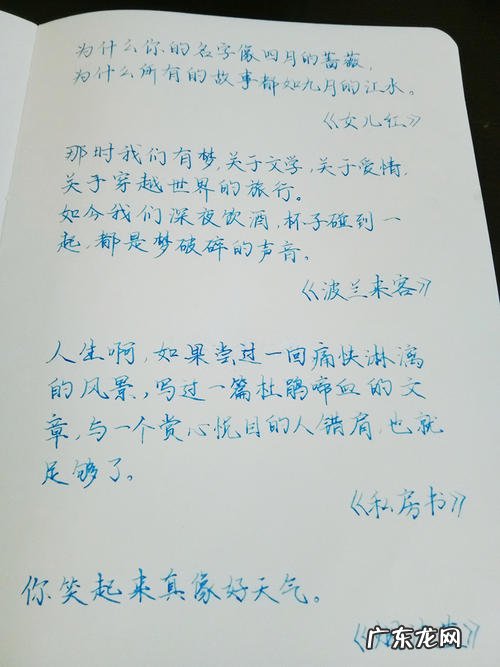 为什么你的名字像四月的蔷薇,
为什么所有的故事都如九月的江水。
《女儿红》
那时我们有梦,关于文学,关于爱情,
关于穿越世界的旅行。
如今我们深夜饮酒,杯子碰到一
起,都是梦破碎的声音。
《波兰来客》
人生啊,如果尝过一回痛快淋漓
的风景,写过一篇杜鹃啼血的文
章,与一个赏心悦目的人错肩,也就
足够了。
《私房书》
你笑起来真像好天气。
广东龙网